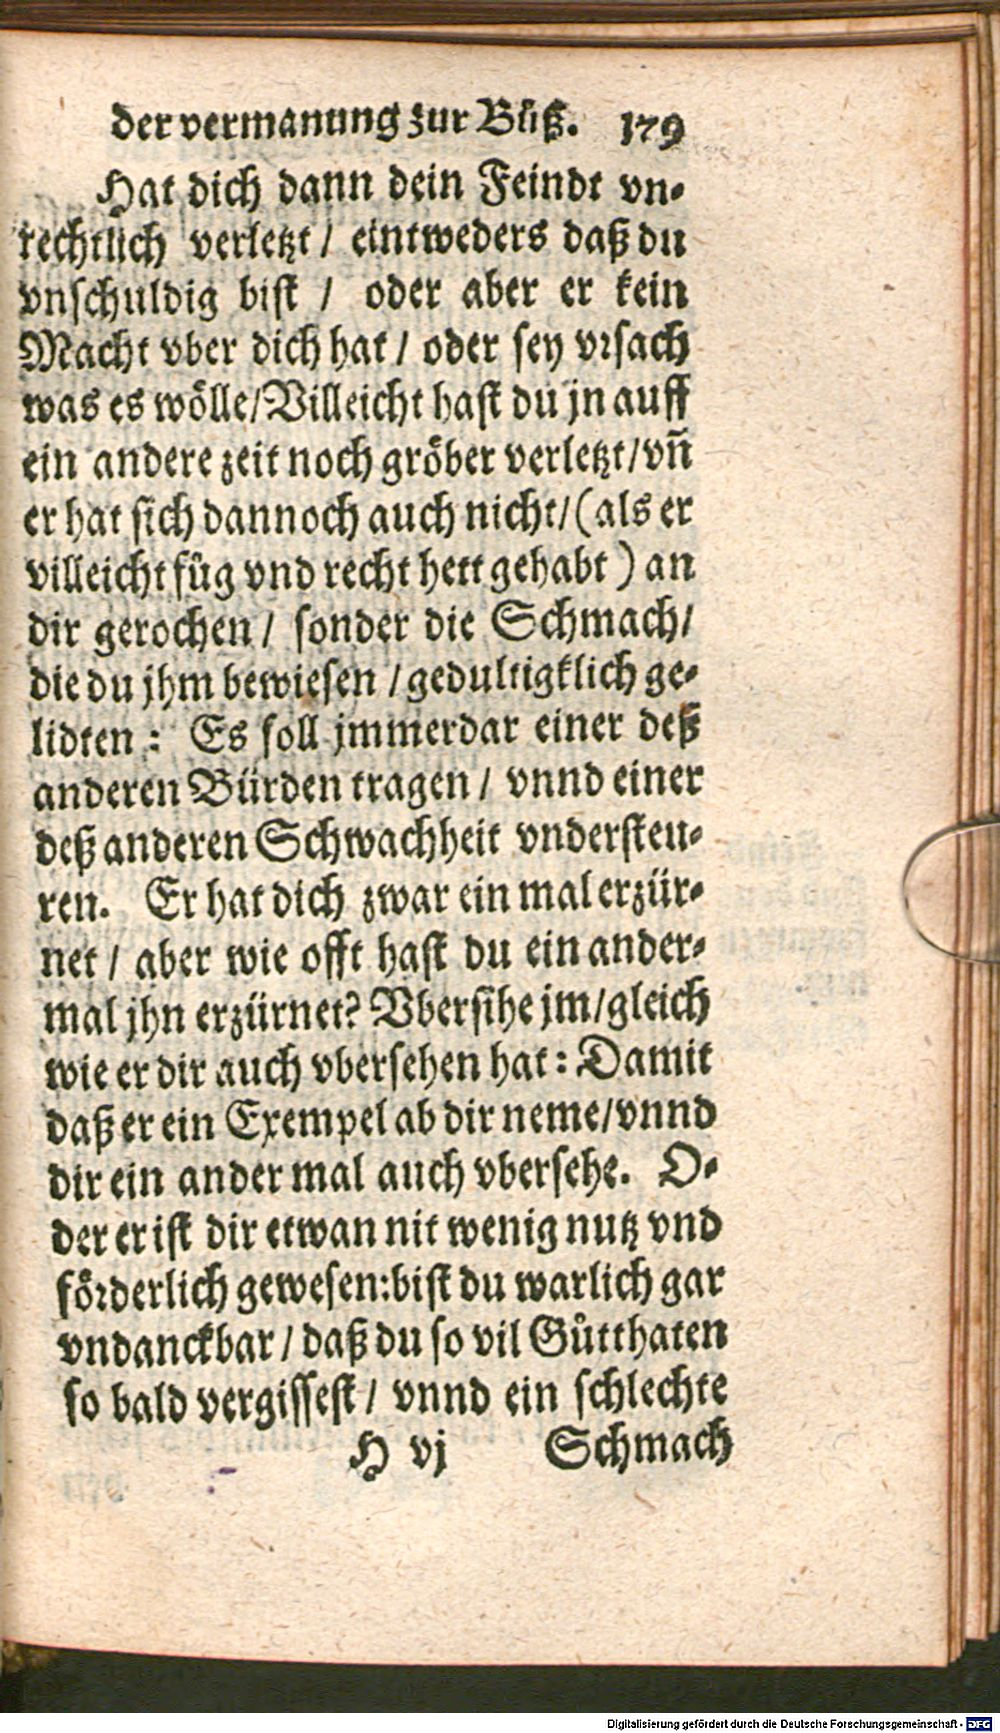 der vermanung zur Bůß. 179
Hat dich dann dein Feindt vn-
rechtlich verletzt / eintweders daß du
vnschuldig bist / oder aber er kein
Macht vber dich hat / oder sey vrsach
was es wölle/Villeicht hast du jn auff
ein andere zeit noch gröber verletzt/vñ
er hat sich dannoch auch nicht/(als er
villeicht fůg vnd recht hett gehabt) an
dir gerochen / sonder die Schmach/
die du jhm bewiesen / gedultigklich ge-
lidten : Es soll jmmerdar einer deß
anderen Bürden tragen / vnnd einer
deß anderen Schwachheit vndersteu-
ren. Er hat dich zwar ein mal erzür-
net / aber wie offt hast du ein ander-
mal jhn erzürnet? Vbersihe jm/gleich
wie er dir auch vbersehen hat : Damit
daß er ein Exempel ab dir neme/vnnd
dir ein ander mal auch vbersehe. O-
der er ist dir etwan nit wenig nutz vnd
förderlich gewesen:bist du warlich gar
vndanckbar / daß du so vil Gůtthaten
so bald vergissest / vnnd ein schlechte
H vj Schmach
Digitalisierung gefördert durch die Deutsche Forschungsgemeinschaft - DFG